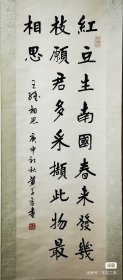 紅豆生南國春来發幾
枝願君多采擷此物最
相思
王維相思 庚申初秋